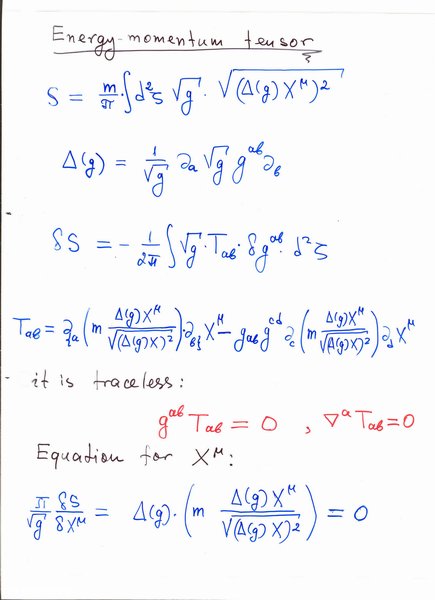 Energy-momentum tensor
S = m/π · ∫ d²ζ √g · √((Δ(g) X^μ)²)
Δ(g) = 1/√g ∂_a √g g^{ab} ∂_b
δS = - 1/2π ∫ √g · T_{ab} · δg^{ab} · d²ζ
T_{ab} = ∂_{{a} (m Δ(g)X^μ / √((Δ(g)X)²)) · ∂_{b}} X^μ - g_{ab} g^{cd} ∂_c (m Δ(g)X^μ / √((Δ(g)X)²)) ∂_d X^μ
- it is traceless:
g^{ab} T_{ab} = 0 , ∇^a T_{ab} = 0
Equation for X^μ:
π/√g δS/δX^μ = Δ(g) · (m Δ(g)X^μ / √((Δ(g)X)²)) = 0